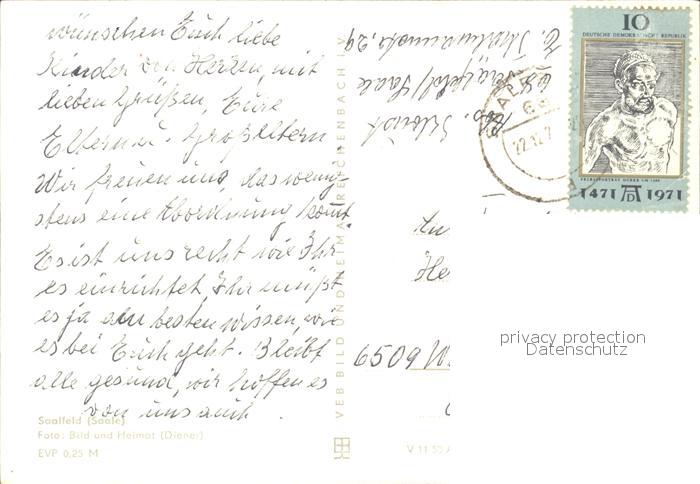 wünschen Euch liebe
Kinder von Herzen, mit
lieben Grüßen, Eure
Eltern u. Großeltern
Wir freuen uns, das wenig-
stens eine Abordnung kommt
Es ist uns recht wie Ihr
es einrichtet, Ihr müßt
es ja am besten wissen, wie
es bei Euch geht. Bleibt
alle gesund, wir hoffen es
von uns auch.
Saalfeld (Saale)
Foto: Bild und Heimat (Diener)
EVP 0,25 M
VEB BILD UND HEIMAT REICHENBACH I. V.
V 11 50
Saalfeld/Saale
22.12.7
10
DEUTSCHE DEMOKRATISCHE REPUBLIK
1471 AD 1971
An
6509 W
privacy protection
Datenschutz